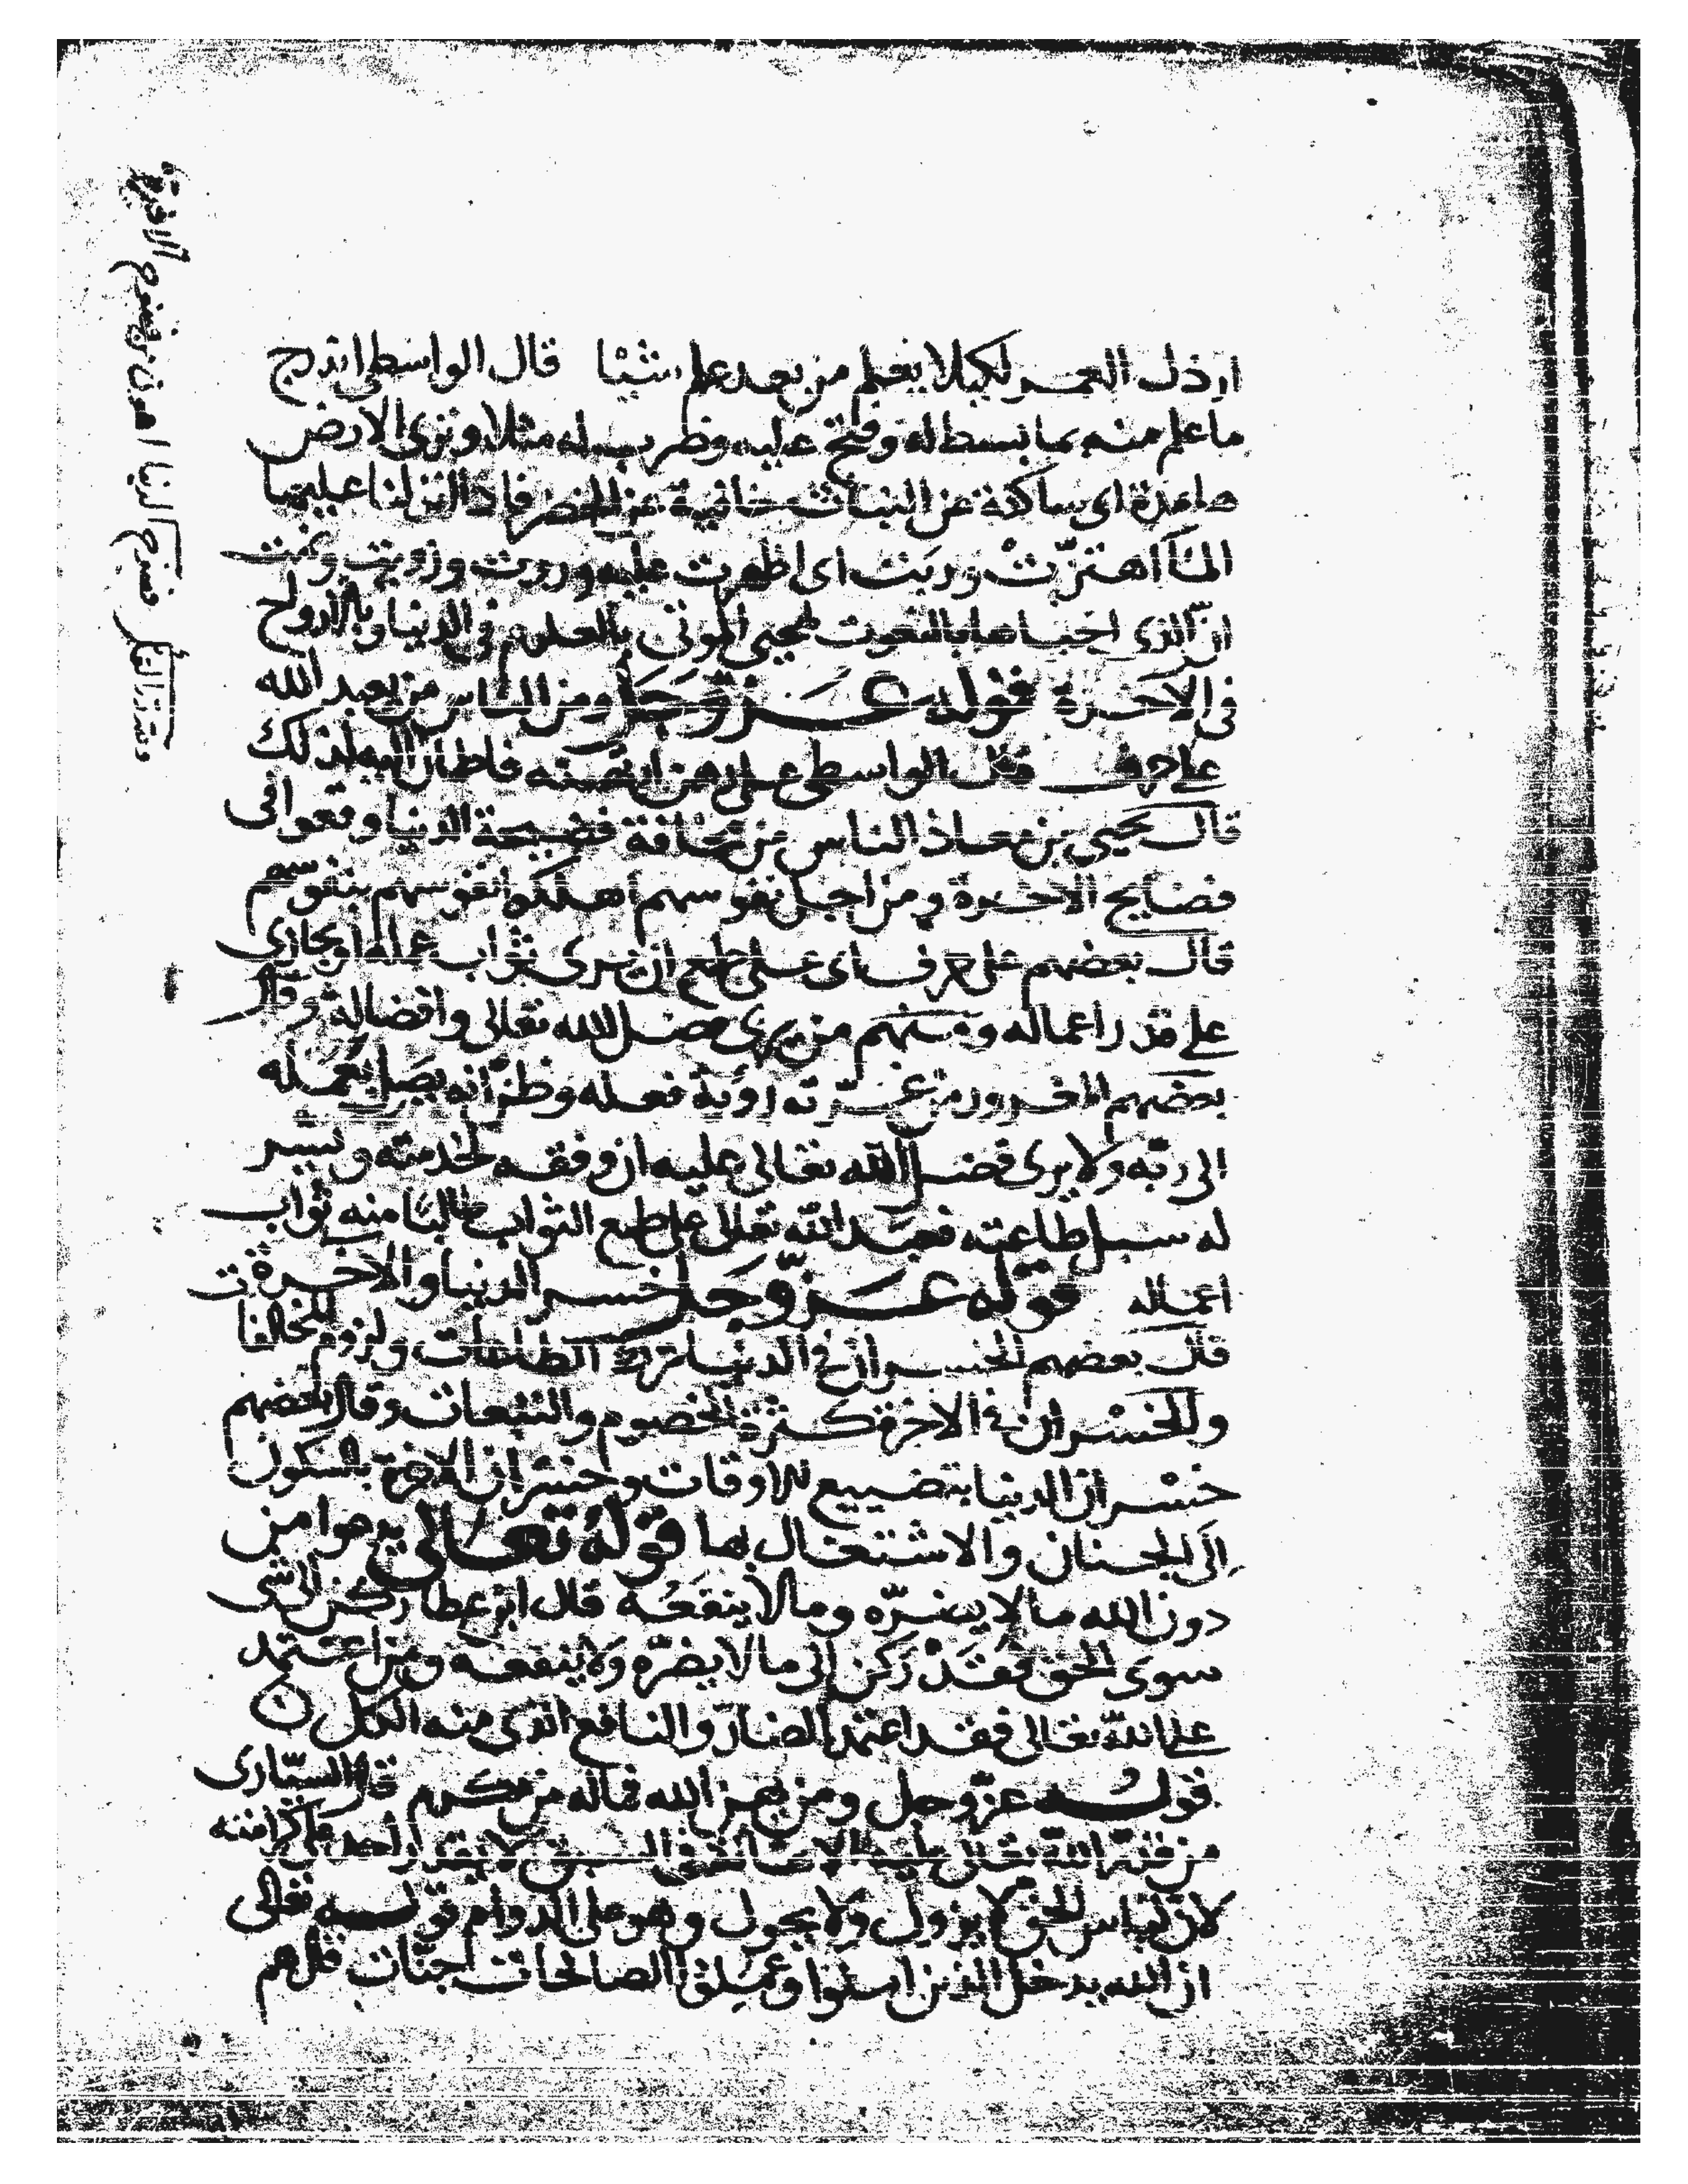 ارذل العمر لكيلا يعلم من بعد علم شيئا قال الواسطى اندرج
ما علم منه بما بسط له وفتح عليه وضرب له مثلا وترى الارض
هامدة اى ساكنة عن النبات خالية عن الخضر فاذا انزلنا عليها
الماء اهتزّت وربت اى اظهرت عليه وروت وزويت ونمت
ان الذى احياها بالبعوث لمحيى الموتى بالعلم فى الدنيا وبالارواح
فى الاخرة قوله عزّ وجلّ ومن الناس من يعبد الله
على حرف قال الواسطى على رهن ان تمنه فاطمان اليه لذلك
قال يحيى بن معاذ الناس من مخافة فضيحة الدنيا وقعوا فى
فضايح الاخرة ومن اجل نفوسهم اهلكوا نفوسهم بنفوسهم
قال بعضهم على حرف اى على طمع ان يرى ثواب عمله او يجازى
على قدر اعماله ومنهم من يرى فضل الله تعالى وافضاله وقال
بعضهم المغرور من غرّته رؤية فعله وظنّ انه يصل بعمله
الى ربّه ولا يرى فضل الله تعالى عليه ان وفقه لخدمته ويسّر
له سبل طاعته فعبد الله تعالى على طمع الثواب طالبا منه ثواب
اعماله قوله عزّ وجلّ خسر الدنيا والاخرة
قال بعضهم الخسران فى الدنيا ترك الطاعات ولزوم المخالفات
والخسران فى الاخرة كثرة الخصوم والتبعات وقال بعضهم
خسران الدنيا بتضييع الاوقات وخسران الاخرة بالسكون
الى الجنان والاشتغال بها قوله تعالى يدعوا من
دون الله ما لا يضرّه وما لا ينفعه قال ابن عطا ركن الى شى
سوى الحق فقد ركن الى ما لا يضرّه ولا ينفعه ومن اعتمد
على الله تعالى فقد اعتمد الضارّ والنافع الذى منه الكل
قوله عزّ وجل ومن يهن الله فما له من مكرم قال السيّارى
من البسه الله تعالى لباس الاهانة فى السبق لا يقدر احد على كرامته
لان لباس الحق لا يزول ولا يحول وهو على الدوام قوله تعالى
ان الله يدخل الذين امنوا وعملوا الصالحات جنّات قال هم
الدنيا اهون من هموم الاخرة